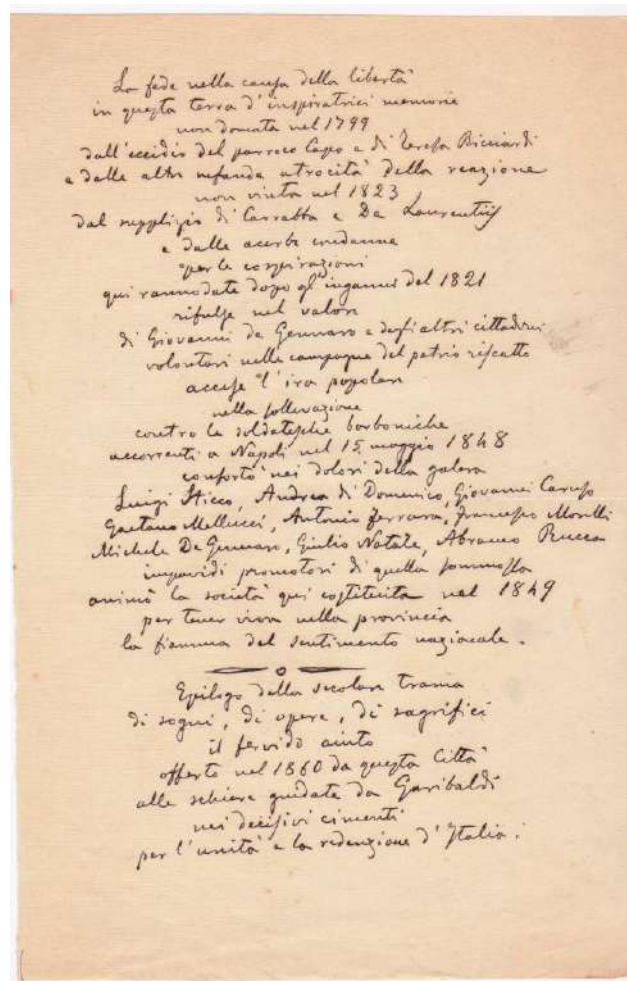 La fede nella causa della libertà
in questa terra d'inspiratrici memorie
non domata nel 1799
dall'eccidio del parroco Capo e di Teresa Ricciardi
e dalle altre nefande atrocità della reazione
non vinta nel 1823
dal supplizio di Carrabba e De Laurentiis
e dalle acerbe condanne
per le cospirazioni
qui rannodate dopo gl'inganni del 1821
rifulse nel valore
di Giovanni de Gennaro e degli altri cittadini
volontari nelle campagne del patrio riscatto
accese l'ira popolare
nella sollevazione
contro le soldatesche borboniche
accorrenti a Napoli nel 15 maggio 1848
confortò nei dolori della galera
Luigi Sticco, Andrea di Domenico, Giovanni Caruso
Gaetano Mellucci, Antonio Ferrara, Francesco Morelli
Michele De Gennaro, Giulio Natale, Abramo Rucca
impavidi promotori di quella sommossa
animò la società qui costituita nel 1849
per tener viva nella provincia
la fiamma del sentimento nazionale.
Epilogo della secolare trama
di sogni, di opere, di sagrifici
il fervido aiuto
offerto nel 1860 da questa Città
alle schiere guidate da Garibaldi
nei decisivi cimenti
per l'unità e la redenzione d'Italia.